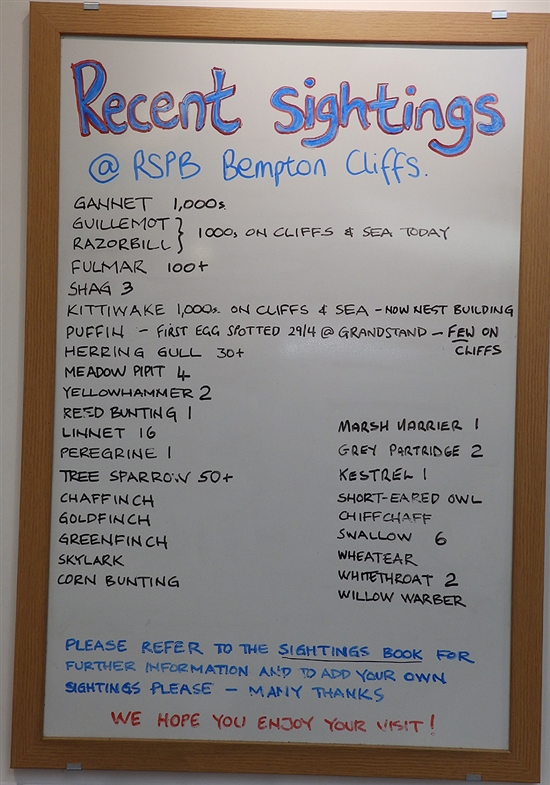 Recent Sightings
@ RSPB Bempton Cliffs.
GANNET 1,000s
GUILLEMOT
RAZORBILL } 1000s ON CLIFFS & SEA TODAY
FULMAR 100+
SHAG 3
KITTIWAKE 1,000s ON CLIFFS & SEA - NOW NEST BUILDING
PUFFIN - FIRST EGG SPOTTED 29/4 @ GRANDSTAND - FEW ON
CLIFFS
HERRING GULL 30+
MEADOW PIPIT 4
YELLOWHAMMER 2
REED BUNTING 1
LINNET 16
PEREGRINE 1
TREE SPARROW 50+
CHAFFINCH
GOLDFINCH
GREENFINCH
SKYLARK
CORN BUNTING
MARSH HARRIER 1
GREY PARTRIDGE 2
KESTREL 1
SHORT-EARED OWL
CHIFFCHAFF
SWALLOW 6
WHEATEAR
WHITETHROAT 2
WILLOW WARBER
PLEASE REFER TO THE SIGHTINGS BOOK FOR
FURTHER INFORMATION AND TO ADD YOUR OWN
SIGHTINGS PLEASE - MANY THANKS
WE HOPE YOU ENJOY YOUR VISIT!